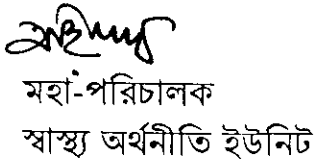 মহা-পরিচালক
স্বাস্থ্য অর্থনীতি ইউনিট